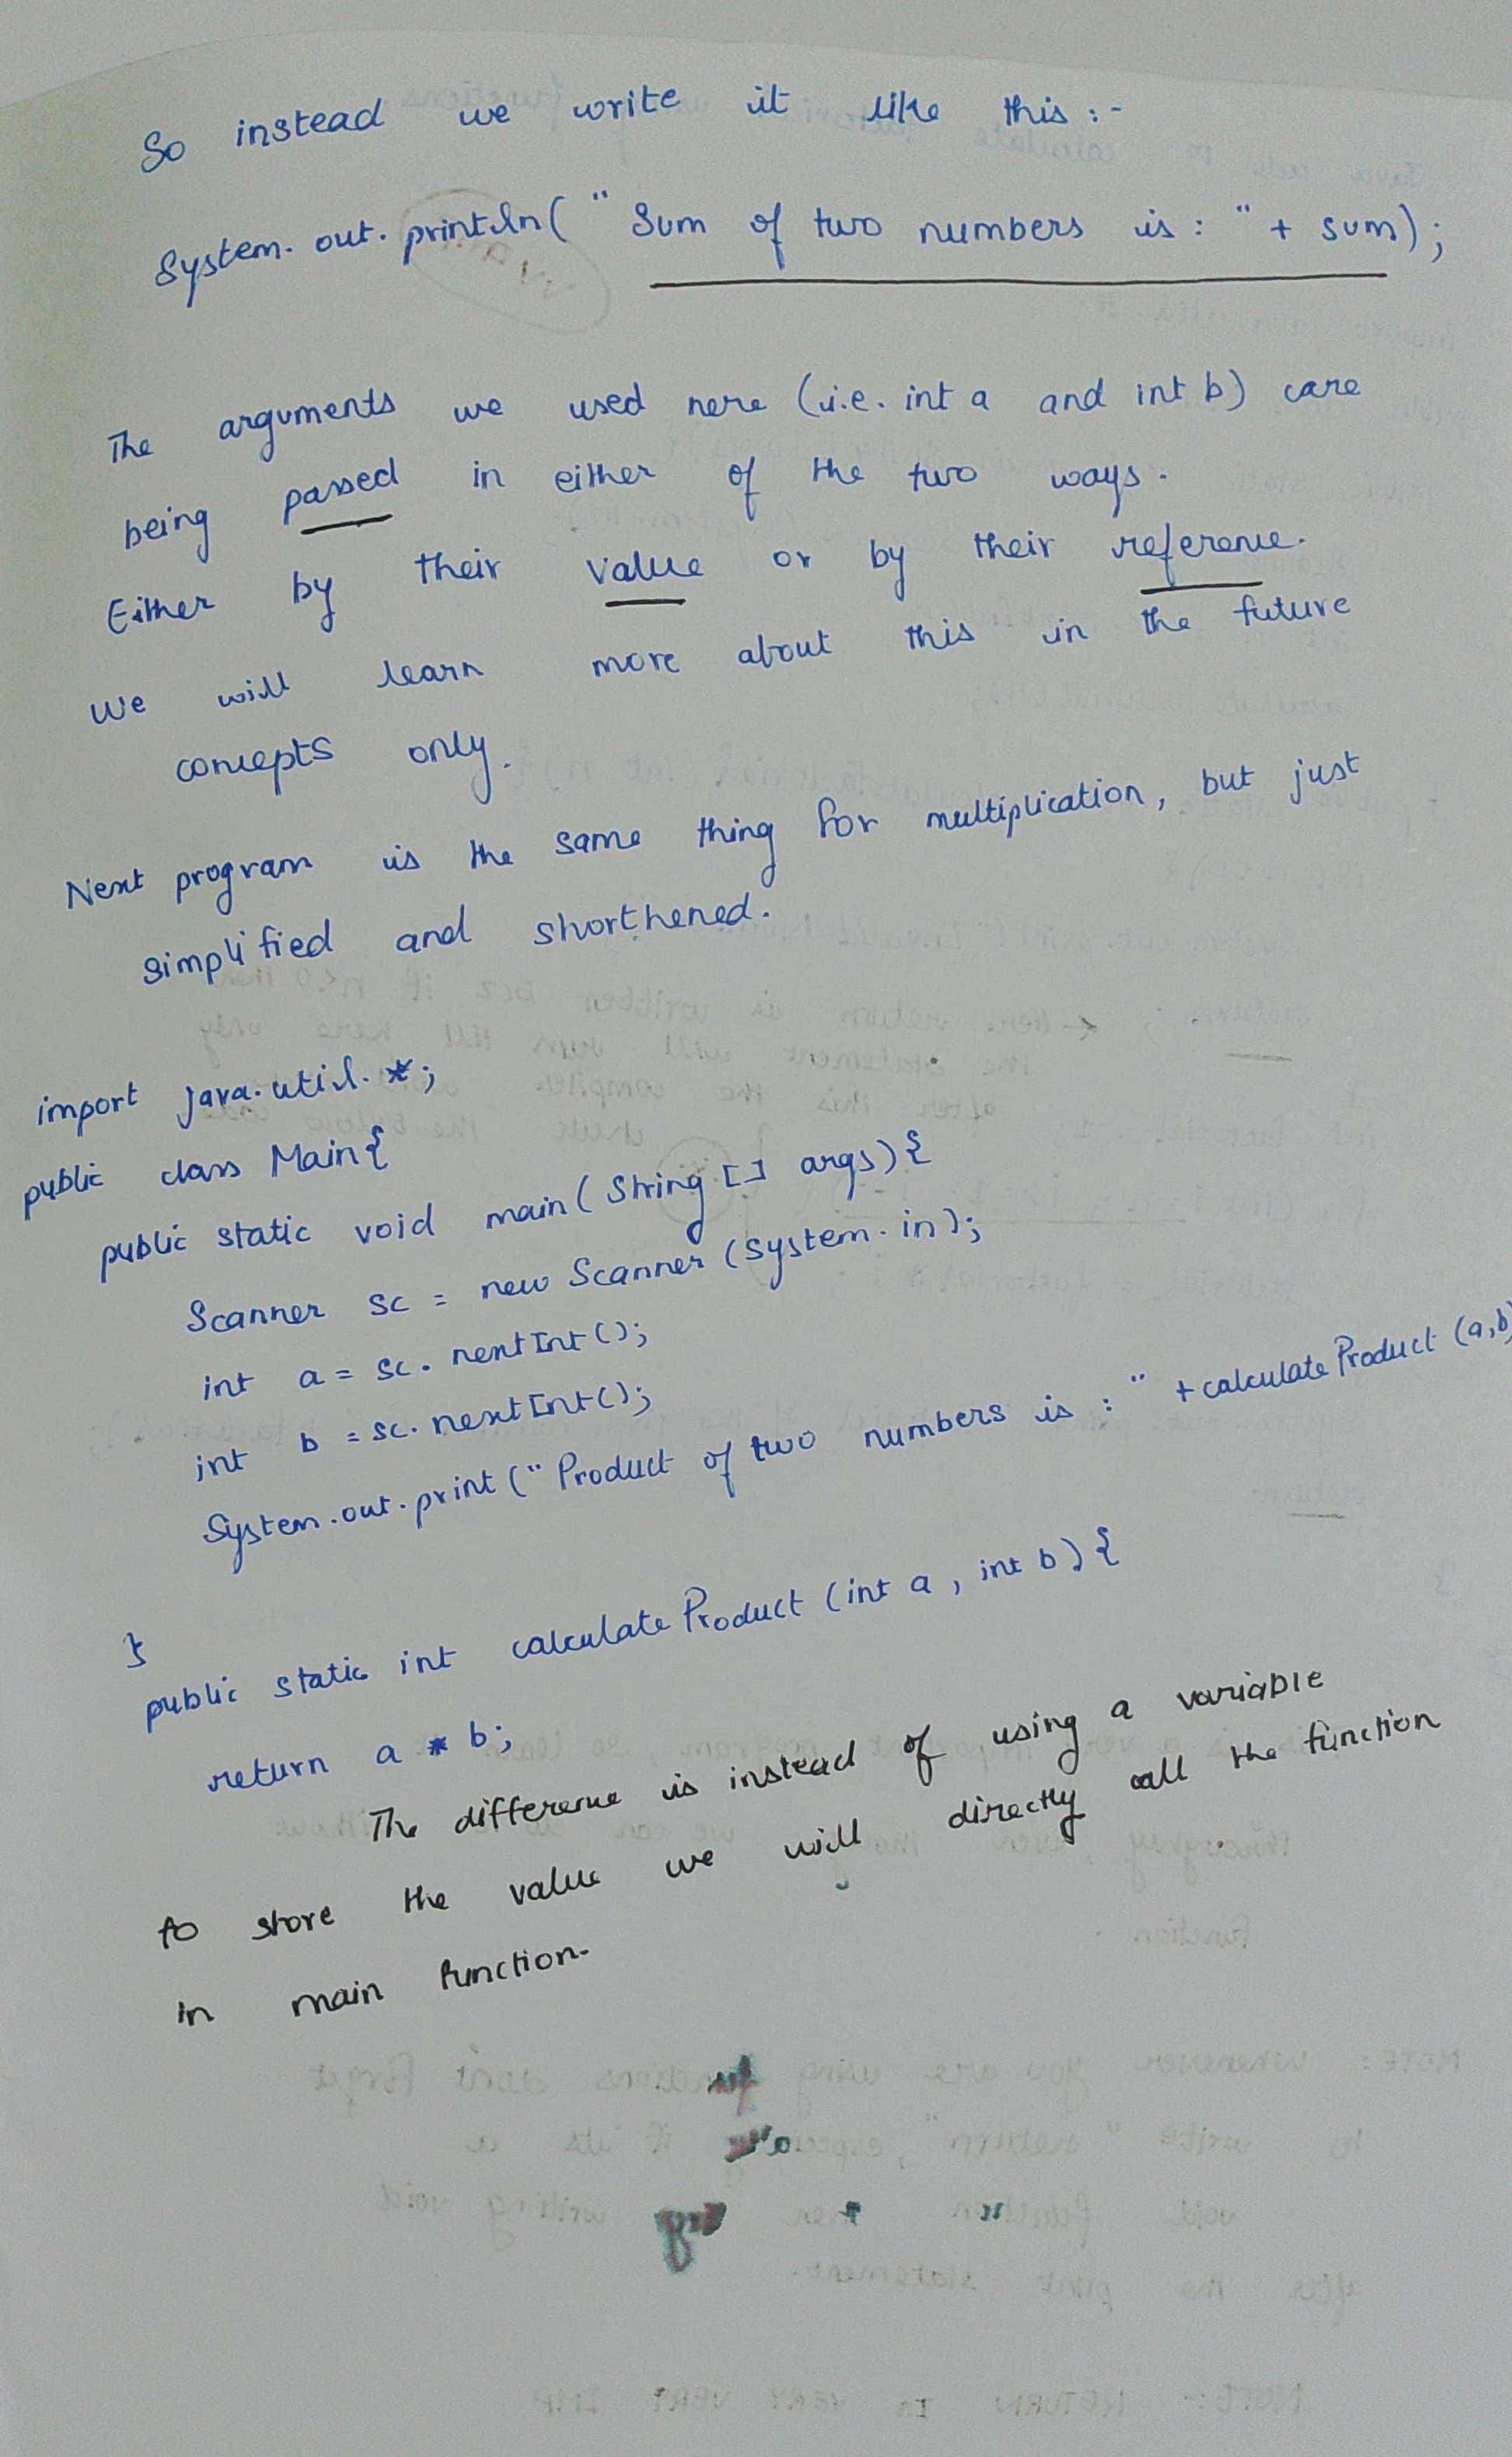 So instead we write it like this :-
System.out.println(" Sum of two numbers is : " + sum);
The arguments we used here (i.e. int a and int b) are
being passed in either of the two ways.
Either by their value or by their reference.
We will learn more about this in the future
concepts only.
Next program is the same thing for multiplication, but just
simplified and shorthened.
import java.util.*;
public class Main{
public static void main( String [] args){
Scanner sc = new Scanner (System.in);
int a = sc. nextInt();
int b = sc. nextInt();
System.out.print (" Product of two numbers is : " + calculate Product (a,b)
}
public static int calculate Product (int a , int b) {
return a * b;
The difference is instead of using a variable
to store the value we will directly call the function
in main function.